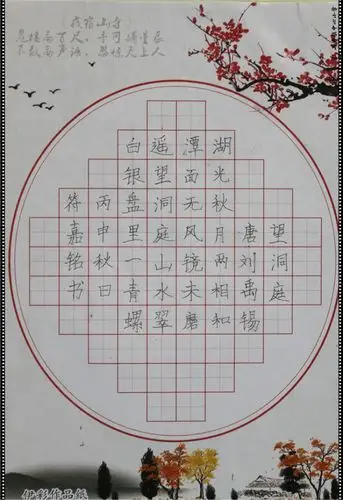 夜宿山寺
危楼高百尺，手可摘星辰
不敢高声语，恐惊天上人
望洞庭
唐刘禹锡
湖光秋月两相和
潭面无风镜未磨
遥望洞庭山水翠
白银盘里一青螺
丙申秋日
符嘉铭书
伊彩作品纸